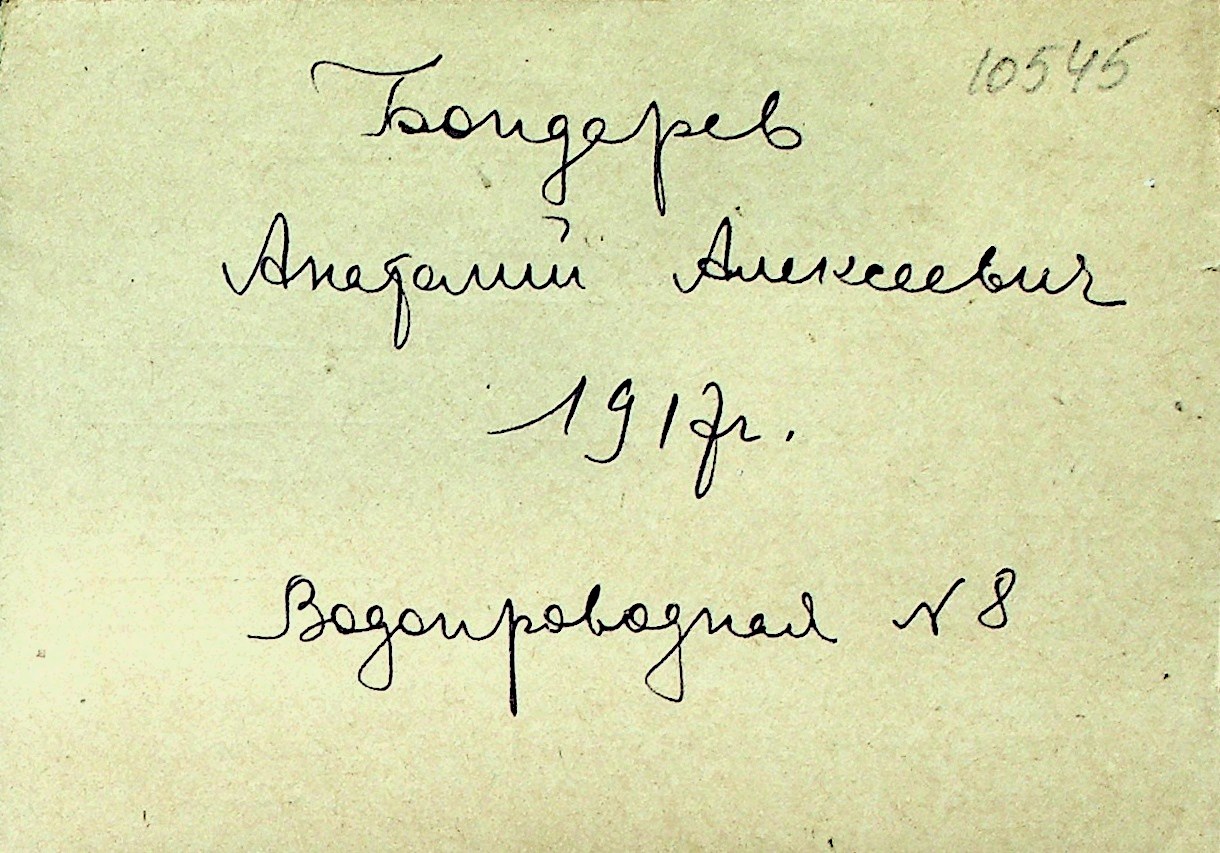 10545
Бондарев
Анатолий Алексеевич
1917г.
Водопроводная N 8